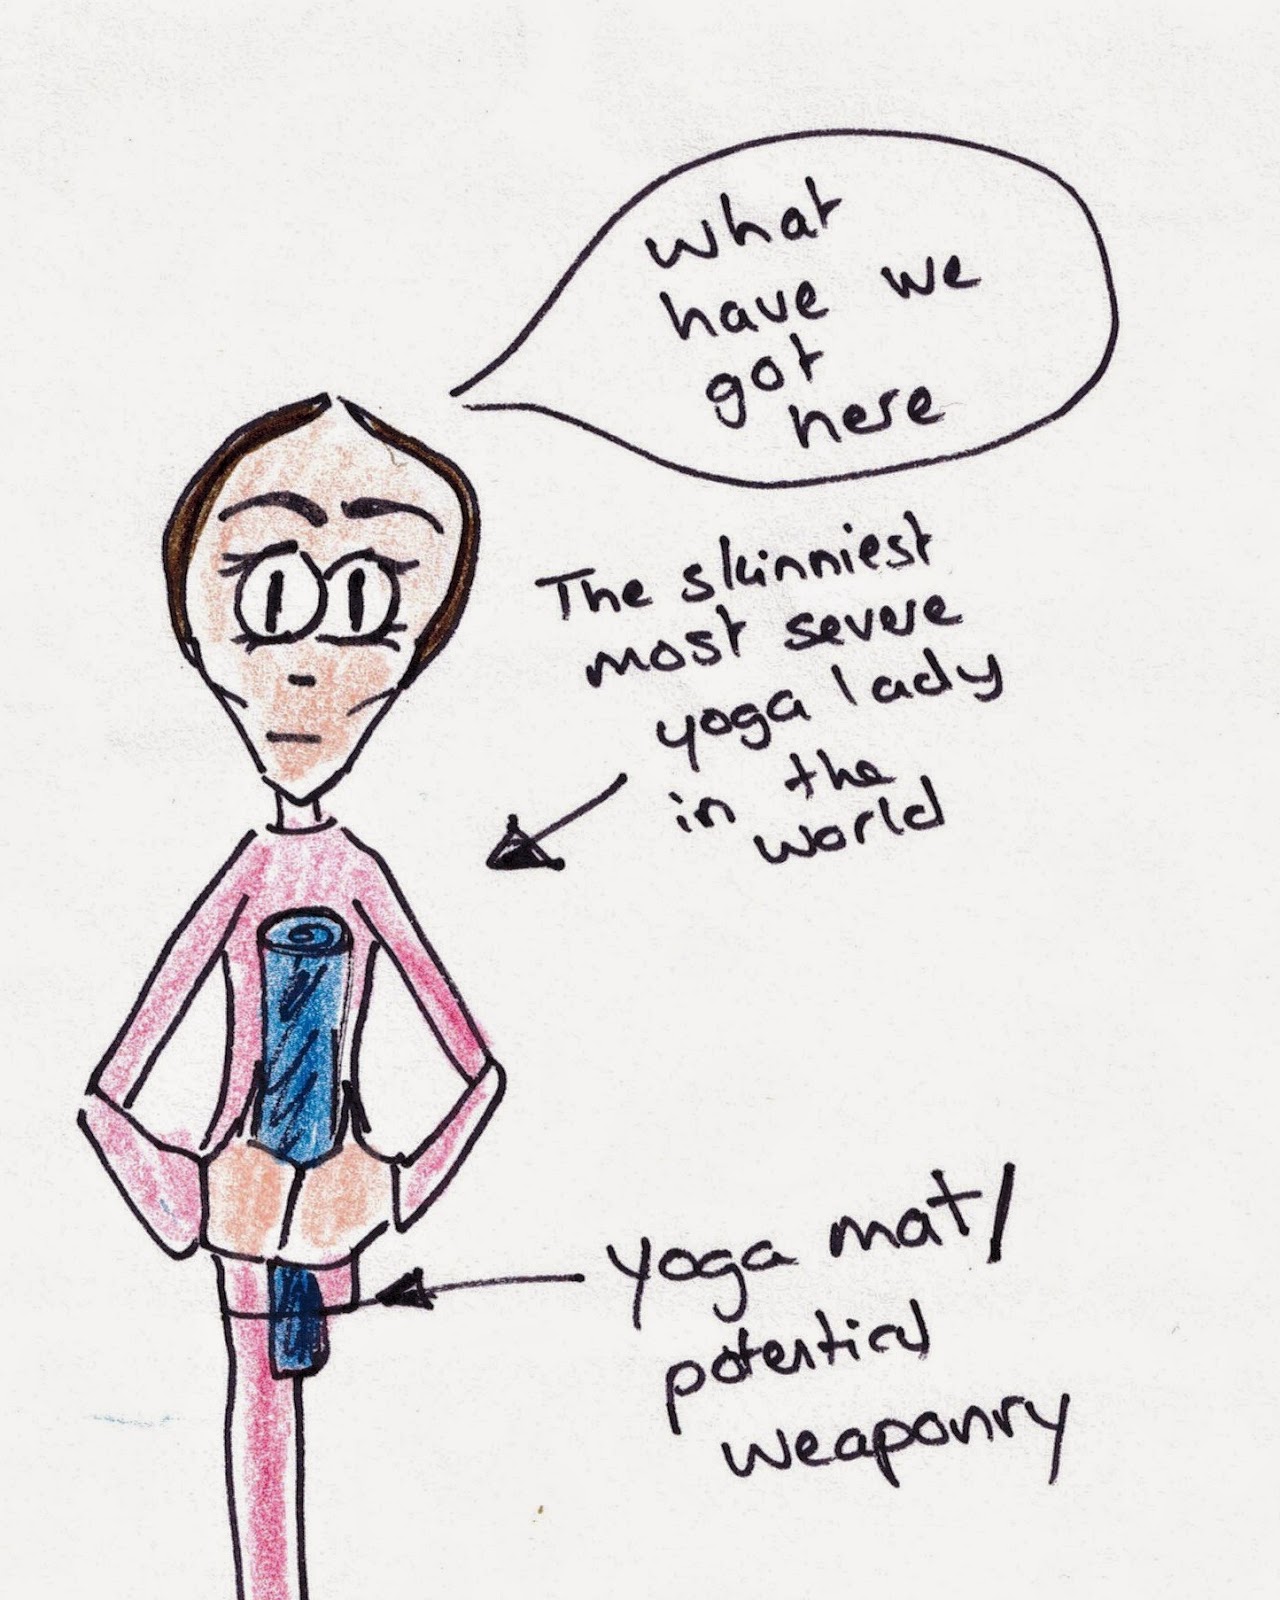 what
have we
got
here
The skinniest
most severe
yoga lady
in the
world
yoga mat/
potential
weaponry